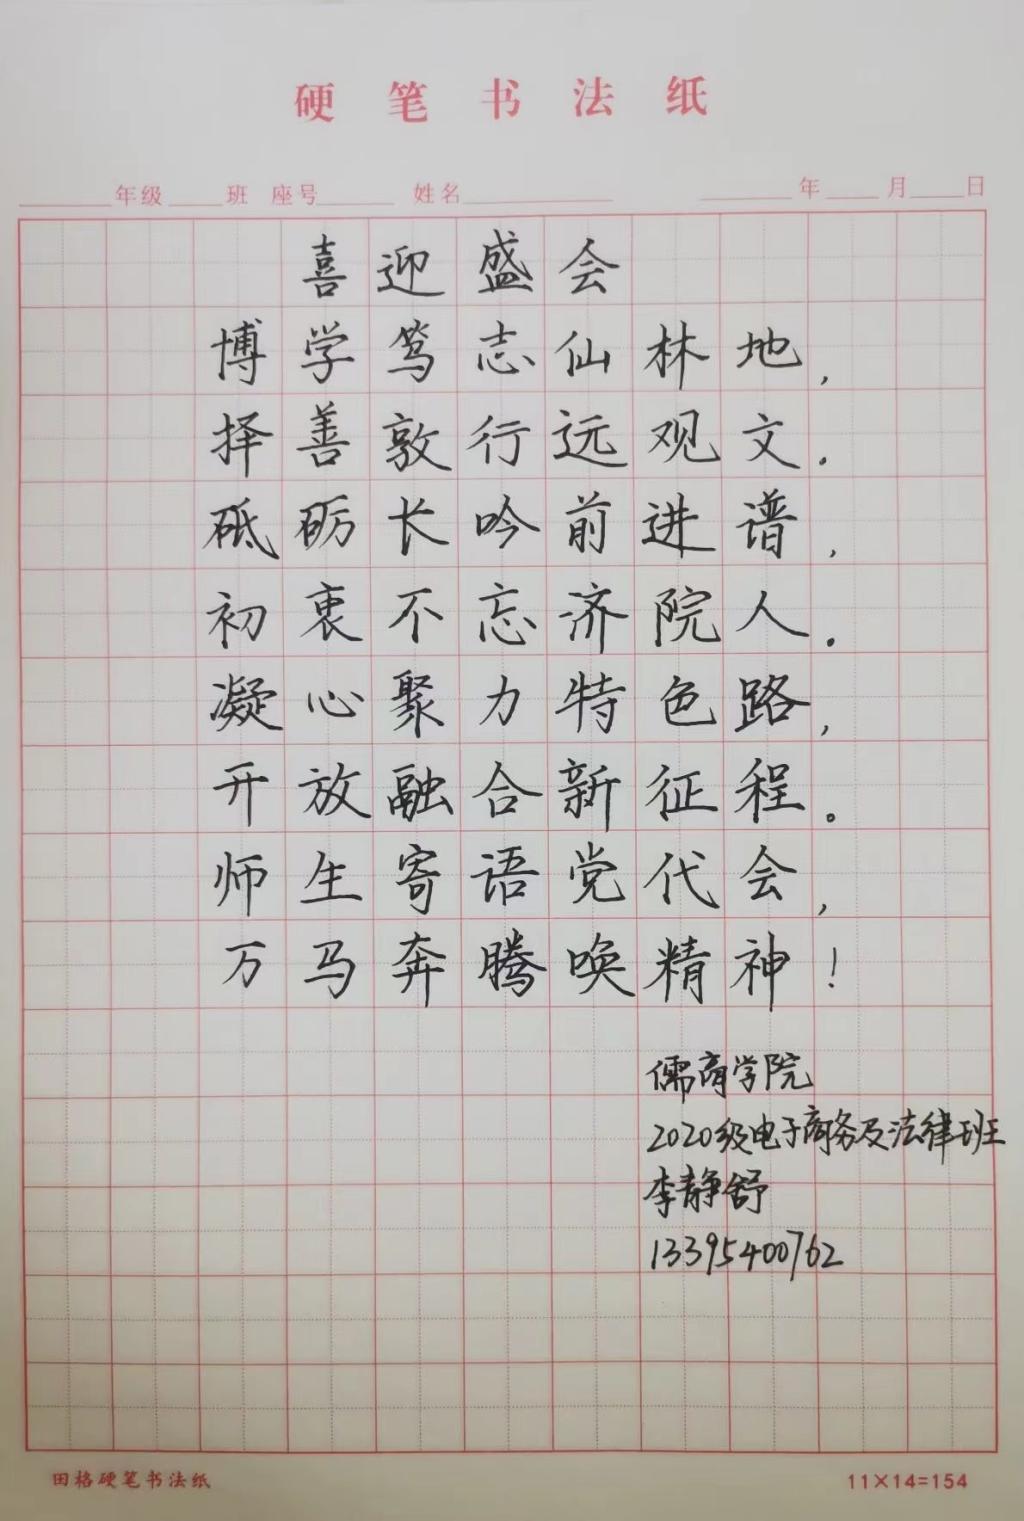 硬笔书法纸
年级 班 座号 姓名 年 月 日
喜迎盛会
博学笃志仙林地，
择善敦行远观文.
砥砺长吟前进谱，
初衷不忘济院人.
凝心聚力特色路，
开放融合新征程。
师生寄语党代会，
万马奔腾唤精神！
儒商学院
2020级电子商务及法律班
李静舒
13395400762
田格硬笔书法纸 11×14=154